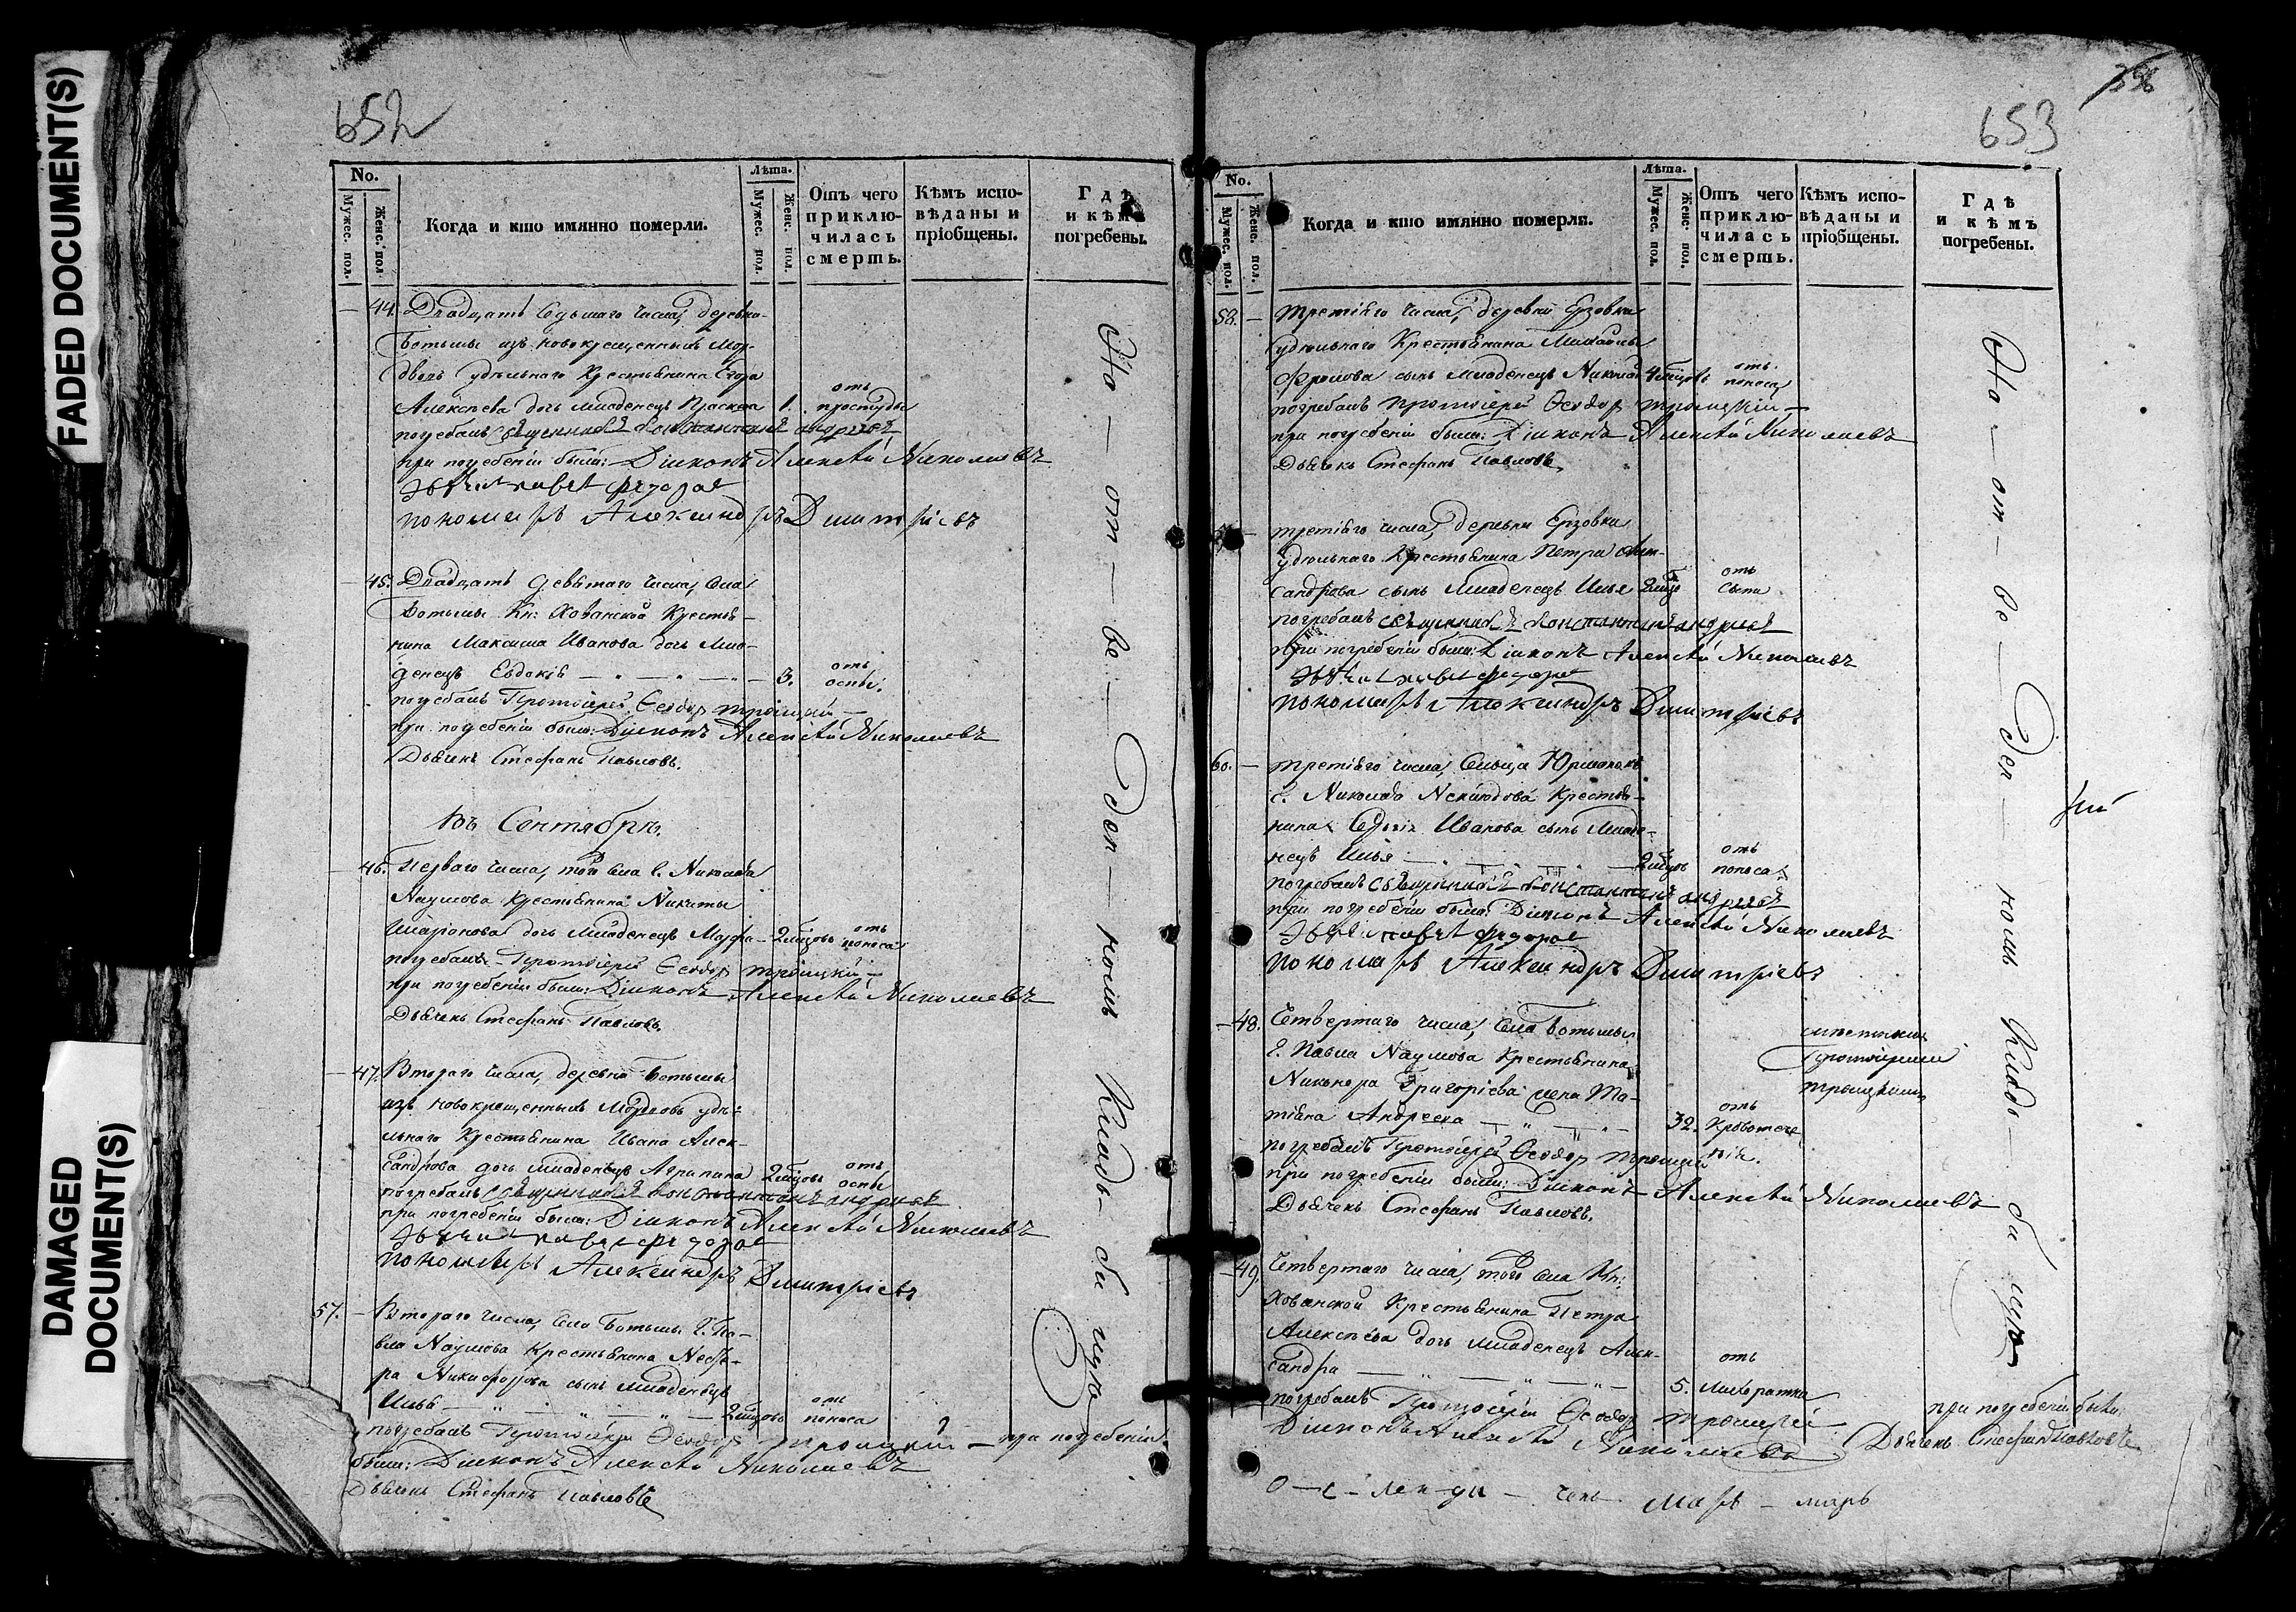 FADED DOCUMENT(S)
DAMAGED
DOCUMENT(S)
652
No.
Мужес. пол.
Женс. пол.
Когда и кто имянно померли.
Лѣта.
Мужес. пол.
Женс. пол.
Отъ чего приклю-
чилась
смерть.
Кѣмъ испо-
вѣданы и
пріобщены.
Гдѣ
и кѣмъ
погребены.
44. Двадцать седьмаго числа, деревни
Ботьмы изъ новокрещенныхъ Мор-
двовъ удѣльнаго Крестьянина Егора
Алексѣева дочь младенецъ Праскева 1. отъ простуды
погребалъ священникъ Константинъ Андреевъ
при погребеніи были: Діаконъ Алексѣй Николаевъ
Дьячекъ Павелъ Федоровъ
пономарь Александръ Димитріевъ
45. Двадцать девятаго числа, села
Ботьмы Кн: Хованской Крестья-
нина Максима Иванова дочь Мла-
денецъ Евдокія 3. отъ оспы.
погребалъ Протоіерей Ѳеодоръ Троицкій
при погребеніи были: Діаконъ Алексѣй Николаевъ
Дьячекъ Стефанъ Павловъ.
Въ Сентябрѣ.
46. Перваго числа, того села г. Николая
Наумова Крестьянина Никиты
Иларіонова дочь младенецъ Марфа 2 мцовъ отъ поноса
погребалъ Протоіерей Ѳеодоръ Троицкій
при погребеніи были: Діаконъ Алексѣй Николаевъ
Дьячекъ Стефанъ Павловъ.
47. Втораго числа, деревни Ботьмы
изъ новокрещенныхъ Мордвовъ удѣ-
льнаго Крестьянина Ивана Алек-
сандрова дочь младенецъ Агрипина 2 мцовъ отъ оспы
погребалъ священникъ Константинъ Андреевъ
при погребеніи были: Діаконъ Алексѣй Николаевъ
Дьячекъ Павелъ Федоровъ
пономарь Александръ Димитріевъ
57. Втораго числа, села Ботьмы г. Па-
вла Наумова Крестьянина
Никифорова сынъ младенецъ
Илья 2 мцовъ отъ поноса
погребалъ Протоіерей Ѳеодоръ Троицкій — при погребеніи
были: Діаконъ Алексѣй Николаевъ
Дьячекъ Стефанъ Павловъ
На — от — ве — ден — номъ Кладь — би — щѣ
653
No.
Мужес. пол.
Женс. пол.
Когда и кто имянно померли.
Лѣта.
Мужес. пол.
Женс. пол.
Отъ чего
приклю-
чилась
смерть.
Кѣмъ испо-
вѣданы и
пріобщены.
Гдѣ
и кѣмъ
погребены.
58. Третіяго числа, деревни Ерзовки
удѣльнаго Крестьянина Михайлы
Фролова сынъ младенецъ Николай 4 мцовъ отъ поноса
погребалъ Протоіерей Ѳеодоръ Троицкій
при погребеніи были: Діаконъ Алексѣй Николаевъ
Дьячекъ Стефанъ Павловъ
третіяго числа, деревни Ерзовки
удѣльнаго Крестьянина Петра Алек-
сандрова сынъ Младенецъ Илья 2 мцо отъ сыпи
погребалъ священникъ Константинъ Андреевъ
При погребеніи были: Діаконъ Алексѣй Николаевъ
Дьячекъ Павелъ Федоровъ
пономарь Александръ Димитріевъ
60. третіяго числа, сельца
г. Николая Неклюдова Крестья-
нина Иванова сынъ Младе-
нецъ Илья 2 мцовъ отъ поноса
погребалъ священникъ Константинъ Андреевъ
при погребеніи были: Діаконъ Алексѣй Николаевъ
Дьячекъ Павелъ Федоровъ
пономарь Александръ Димитріевъ
48. Четвертаго числа, села Ботьмы
г. Павла Наумова Крестьянина
Никонора Григоріева жена Та-
тіяна Андреева 32. отъ Кровотече-
нія.
Протоіереемъ
Троицкимъ
погребалъ Протоіерей Ѳеодоръ Троицкій
при погребеніи были: Діаконъ Алексѣй Николаевъ
Дьячекъ Стефанъ Павловъ.
49. Четвертаго числа, того села Кн:
Хованской Крестьянина Петра
Алексѣева дочь младенецъ Алек-
сандра 5. отъ лихоратки
погребалъ Протоіерей Ѳеодоръ Троицкій при погребеніи были
Діаконъ Алексѣй Николаевъ Дьячекъ Стефанъ Павловъ
На — от — ве — ден — номъ Кладь — би — щѣ